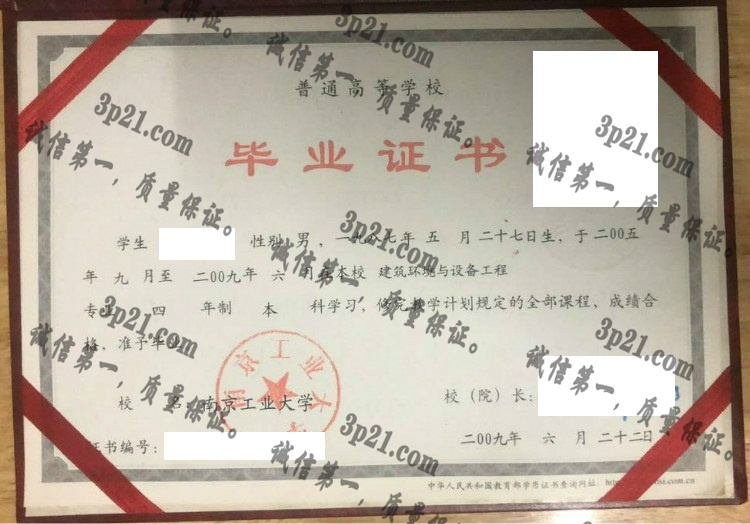 普通高等学校
毕业证书
学生 性别 男，一九八七年 五 月二十七日生，于二00五
年 九 月至 二00九年 六 月在本校 建筑环境与设备工程
专业 四 年制 本 科学习，修完教学计划规定的全部课程，成绩合
格，准予毕业。
南京工业大学
校 名：南京工业大学
校（院）长：
证书编号：
二00九年 六 月 二十二日
中华人民共和国教育部学历证书查询网址：
3p21.com
诚信第一，质量保证。
3p21.com
诚信第一，质量保证。
3p21.com
诚信第一，质量保证。
3p21.com
诚信第一，质量保证。
3p21.com
诚信第一，质量保证。
3p21.com
诚信第一，质量保证。
3p21.com
诚信第一，质量保证。
3p21.com
诚信第一，质量保证。